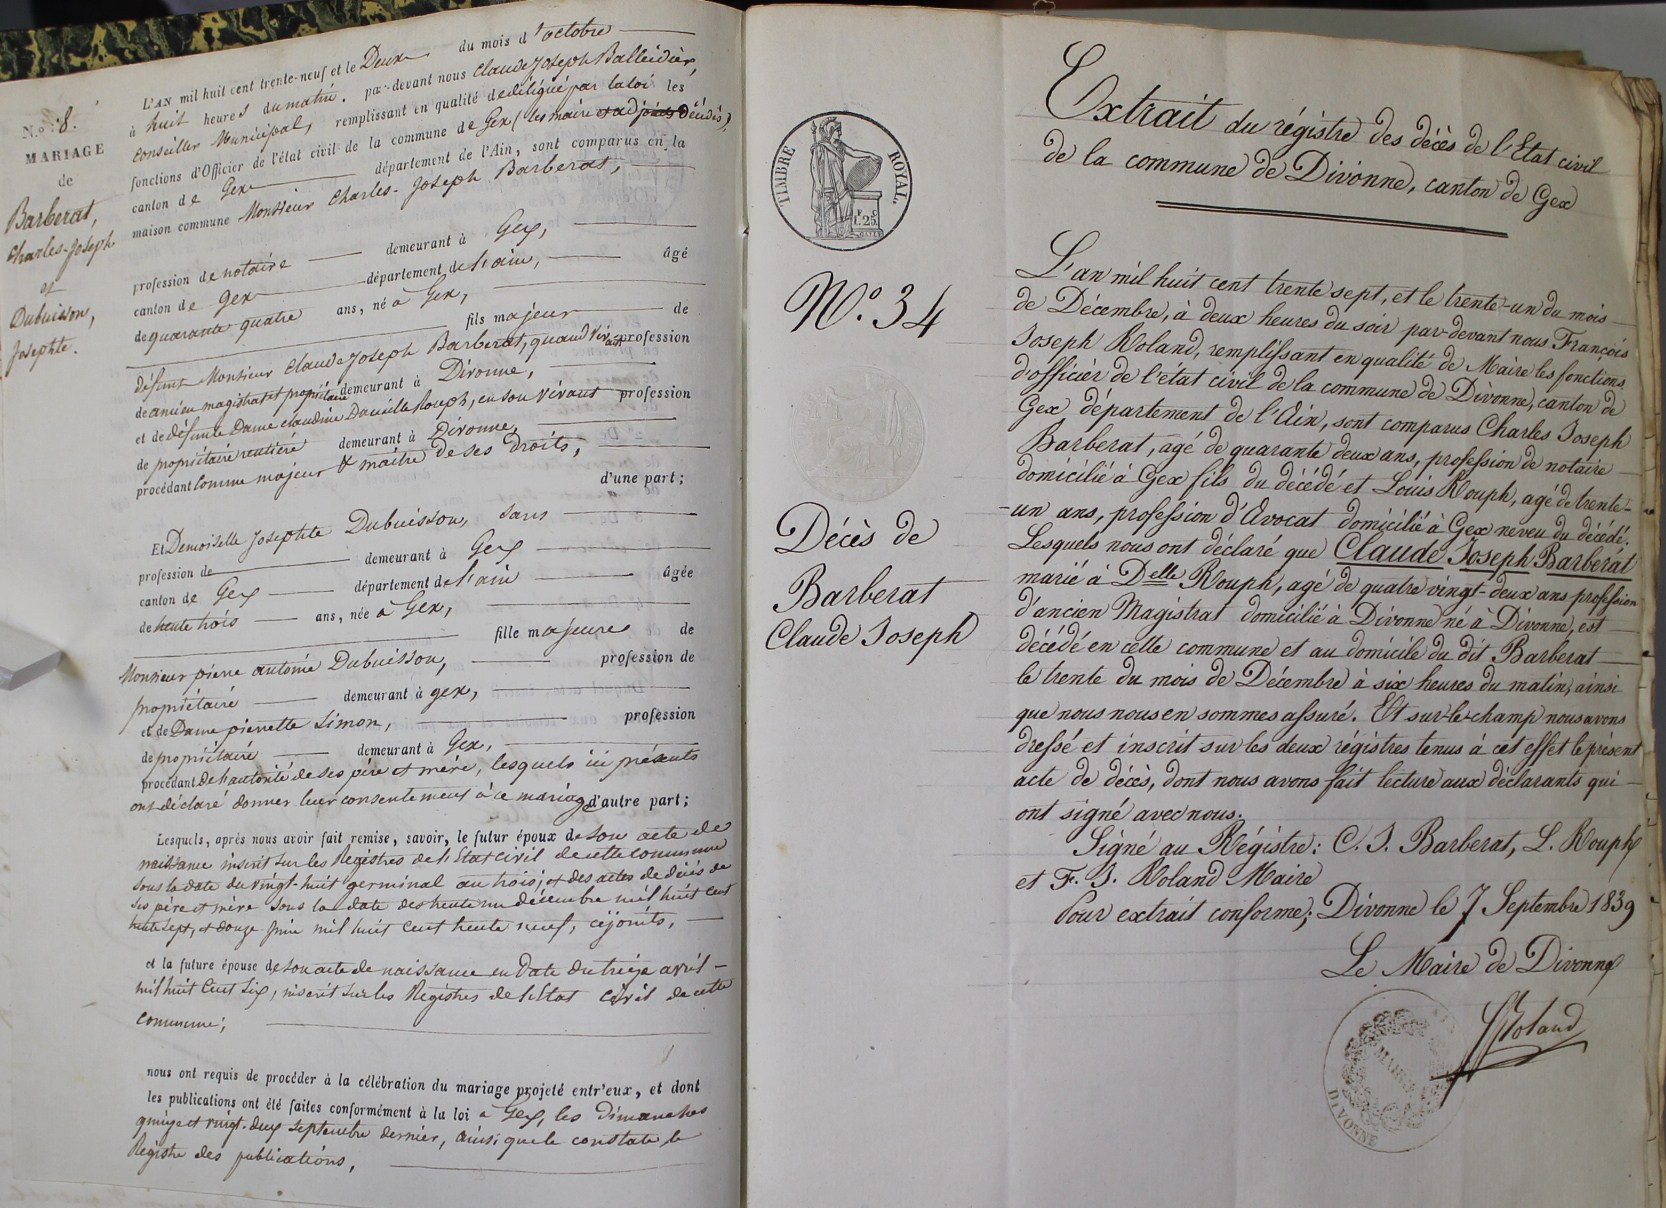 N.o 8.
MARIAGE
de
Barberat,
Charles-Joseph
et
Dubuisson,
Josephte.
L'AN mil huit cent trente-neuf et le Deux du mois d'octobre
à huit heures du matin, par-devant nous Claude Joseph Balleidier,
Conseiller Municipal, remplissant en qualité de délégué par la loi les
fonctions d'Officier de l'état civil de la commune de Gex (les maire et adjoints décédés),
canton de Gex département de l'Ain, sont comparus en la
maison commune Monsieur Charles-Joseph Barberat,
profession de notaire demeurant à Gex,
canton de Gex département de l'ain, âgé
de quarante quatre ans, né à Gex,
fils majeur de
défunt Monsieur Claude Joseph Barberat, quand vivait profession
de ancien magistrat et propriétaire demeurant à Divonne,
et de défunte Dame claudine Danielle Rouph, en son vivant profession
de propriétaire rentière demeurant à Divonne,
procédant comme majeur & maître de ses droits,
d'une part;
Et Demoiselle Josephte Dubuisson, sans
profession de demeurant à Gex
canton de Gex département de l'ain âgée
de trente trois ans, née à Gex,
fille majeure de
Monsieur pierre antoine Dubuisson, profession de
propriétaire demeurant à gex,
et de Dame pierrette Simon, profession
de propriétaire demeurant à Gex,
procédant de l'autorité de ses père et mère, lesquels ici présents
ont déclaré donner leur consentement à ce mariage d'autre part;
Lesquels, après nous avoir fait remise, savoir, le futur époux de son acte de
naissance inscrit sur les Registres de l'Etat civil de cette commune
sous la date du vingt-huit germinal an trois; et des actes de décès de
ses père et mère sous la date des trente un décembre mil huit cent
trente sept, et douze juin mil huit cent trente neuf, cijoints,
et la future épouse de son acte de naissance en date du treize avril
mil huit cent six, inscrit sur les Registres de l'Etat civil de cette
commune;
nous ont requis de procéder à la célébration du mariage projeté entr'eux, et dont
les publications ont été faites conformément à la loi à Gex, les dimanches
quinze et vingt-deux septembre dernier, ainsi que le constate le
Registre des publications,
TIMBRE ROYAL.
F. C.
1.25
N.o 34
Décès de
Barberat
Claude Joseph
Extrait du régistre des décès de l'Etat civil
de la commune de Divonne, canton de Gex
L'an mil huit cent trente sept, et le trente-un du mois
de Décembre, à deux heures du soir par-devant nous François
Joseph Roland, remplissant en qualité de Maire les fonctions
d'officier de l'état civil de la commune de Divonne, canton de
Gex, département de l'Ain, sont comparus Charles Joseph
Barberat, agé de quarante deux ans, profession de notaire
domicilié à Gex fils du décédé et Louis Rouph, agé de trente-
-un ans, profession d'Avocat domicilié à Gex neveu du décédé.
Lesquels nous ont déclaré que Claude Joseph Barberat
marié à Delle Rouph, agé de quatre vingt-deux ans profession
d'ancien Magistrat domicilié à Divonne né à Divonne, est
décédé en cette commune et au domicile du dit Barberat
le trente du mois de Décembre à six heures du matin, ainsi
que nous nous en sommes assuré. Et sur-le-champ nous avons
dressé et inscrit sur les deux régistres tenus à cet effet le présent
acte de décès, dont nous avons fait lecture aux déclarants qui
ont signé avec nous.
Signé au Régistre: C. J. Barberat, L. Rouph
et F. J. Roland Maire
Pour extrait conforme; Divonne le 7 Septembre 1839
Le Maire de Divonne
Roland
MAIRIE
DIVONNE